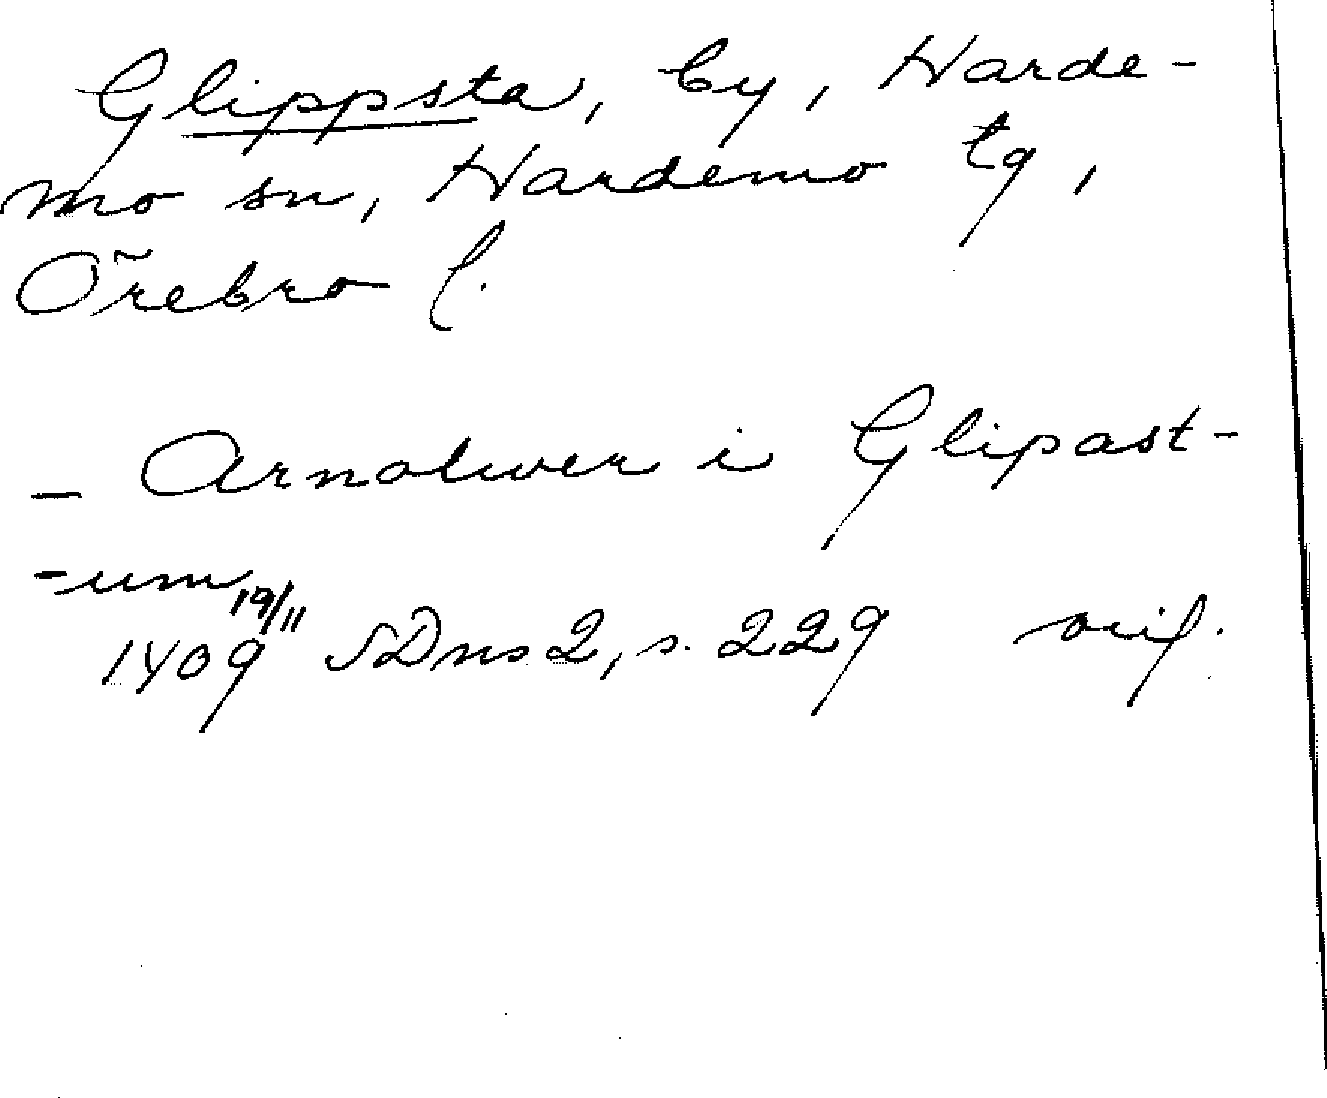 Glippsta, by, Harde-
mo sn, Hardemo tg,
Örebro l.
- Arnolwer i Glipast-
-um
19/11
1409 SDns 2, s. 229 orig.